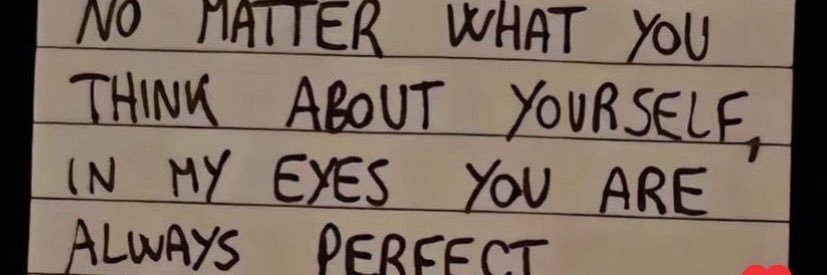 NO MATTER WHAT YOU
THINK ABOUT YOURSELF,
IN MY EYES YOU ARE
ALWAYS PERFECT